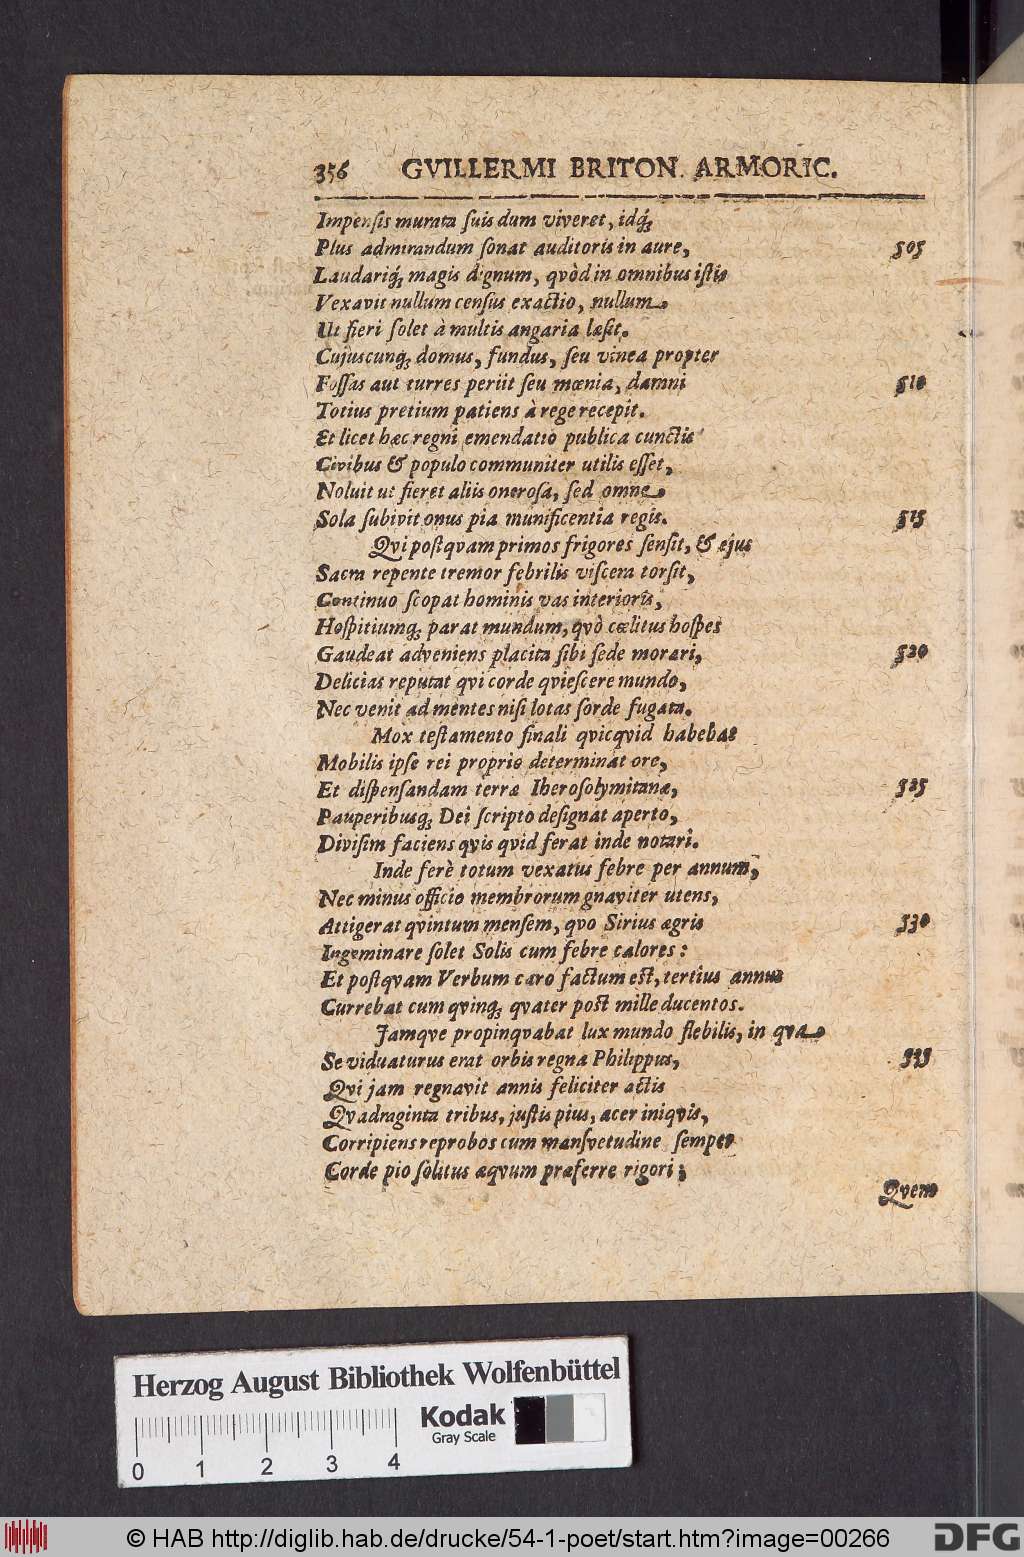 356 GVILLERMI BRITON. ARMORIC.
Impensis murata suis dum viveret, idq́;
Plus admirandum sonat auditoris in aure, 505
Laudariq́; magis dignum, qvòd in omnibus istis
Vexavit nullum census exactio, nullum
Ut fieri solet à multis angaria læsit.
Cujuscunq́; domus, fundus, seu vinea propter
Fossas aut turres periit seu mœnia, damni 510
Totius pretium patiens à rege recepit.
Et licet hæc regni emendatio publica cunctis
Civibus & populo communiter utilis esset,
Noluit ut fieret aliis onerosa, sed omne
Sola subivit onus pia munificentia regis. 515
Qvi postqvam primos frigores sensit, & ejus
Sacra repente tremor febrilis viscera torsit,
Continuo scopat hominis vas interioris,
Hospitiumq; parat mundum, qvò cælitus hospes
Gaudeat adveniens placita sibi sede morari, 520
Delicias reputat qvi corde qviescere mundo,
Nec venit ad mentes nisi lotas sorde fugata.
Mox testamento finali qvicqvid habebat
Mobilis ipse rei proprio determinat ore,
Et dispensandam terræ Iherosolymitanæ, 525
Pauperibusq; Dei scripto designat aperto,
Divisim faciens qvis qvid ferat inde notari.
Inde ferè totum vexatus febre per annum,
Nec minus officio membrorum gnaviter utens,
Attigerat qvintum mensem, qvo Sirius ægris 530
Ingeminare solet Solis cum febre calores:
Et postqvam Verbum caro factum est, tertius annus
Currebat cum qvinq; qvater post mille ducentos.
Jamqve propinqvabat lux mundo flebilis, in qva
Se viduaturus erat orbis regna Philippus, 535
Qvi jam regnavit annis feliciter actis
Qvadraginta tribus, justis pius, acer iniqvis,
Corripiens reprobos cum mansvetudine semper
Corde pio solitus æqvum præferre rigori;
Qvem
Herzog August Bibliothek Wolfenbüttel
Kodak
Gray Scale
0 1 2 3 4
© HAB http://diglib.hab.de/drucke/54-1-poet/start.htm?image=00266
DFG